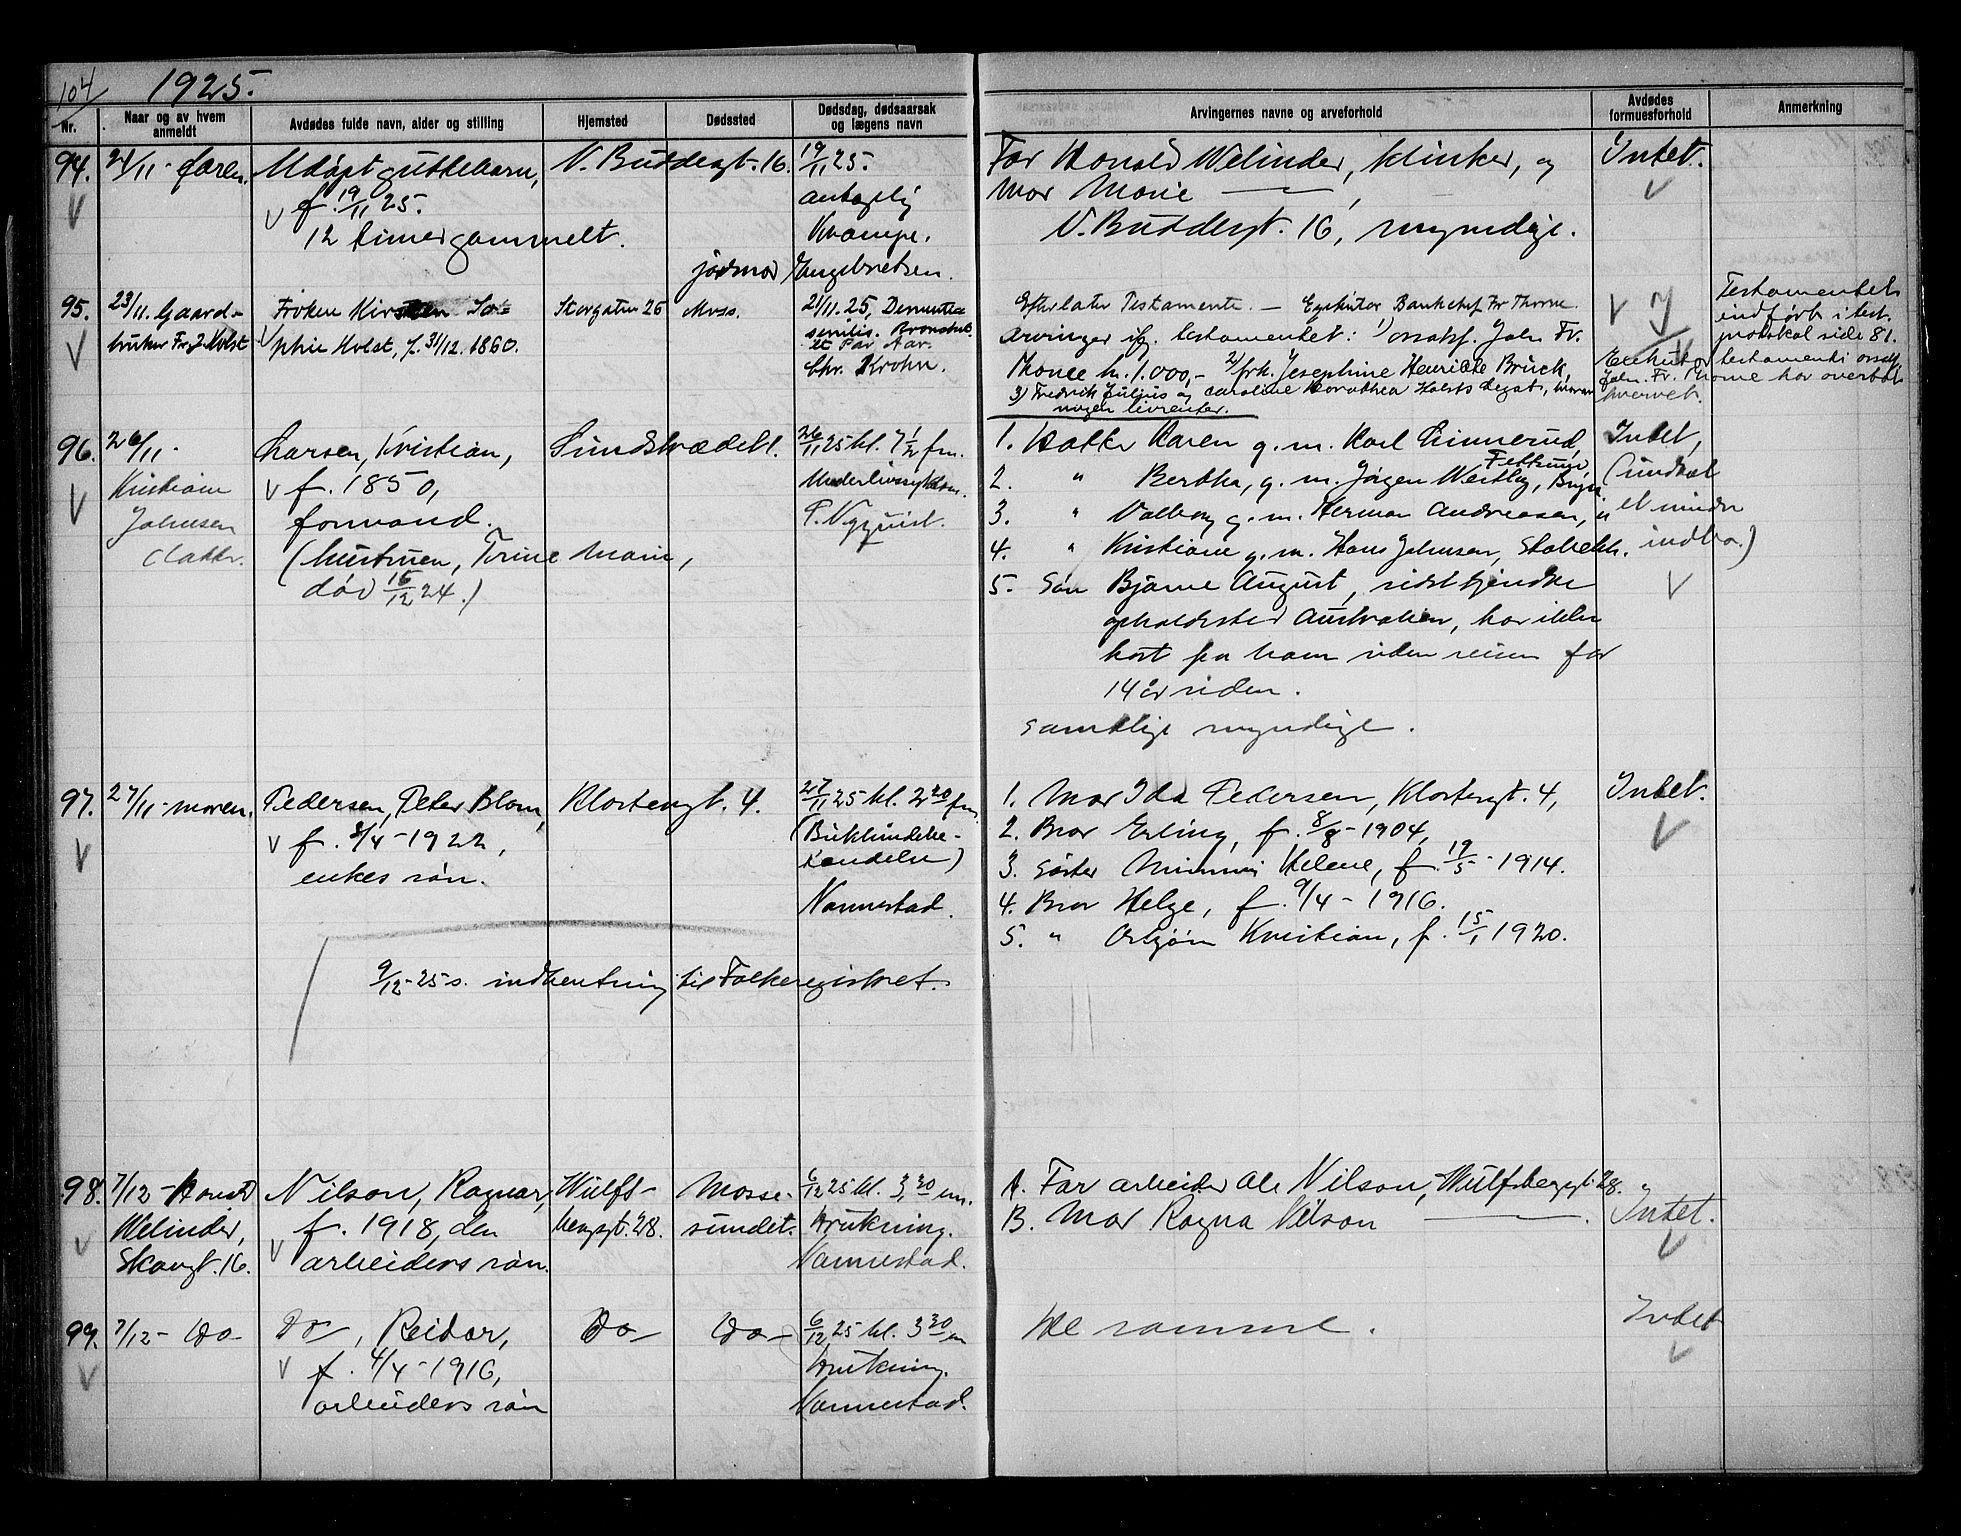 104
1925.
Nr.
Naar og av hvem anmeldt
Avdødes fulde navn, alder og stilling
Hjemsted
Dødssted
Dødsdag, dødsaarsak og lægens navn
Arvingernes navne og arveforhold
Avdødes formuesforhold
Anmerkning
94.
Udøpt guttebarn,
f. 19/11 25.
12 timer gammelt.
V. Buddesgt. 16.
19/11 25.
antagelig
Krampe.
jordmor Engebretsen.
Far Harald Welinder, klinker, og
mor Marie —
V. Buddesgt. 16, myndige.
Intet.
95.
23/11. Gaard-
bruker Fr. J. Holst
Frøken Kirsten So-
phie Holst, f. 31/12. 1860.
Storgaten 26
Moss.
21/11. 25, Dementia
senilis.
Chr. Krohn.
Efterlater Testamente. — Exekutor Banksjef Fr Thorne.
Arvinger ifg. testamentet: 1) Joh. Fr.
Thorne kr. 1.000,- 2) frk. Josephine Henriette Brück,
3) Fredrik Julius og Caroline Dorothea Holsts Legat,
nogen livrenter.
Exekutor testamenti
Joh. Fr. Thorne har overtat
hvervet.
Testamentet
indført i test.
protokol side 81.
96.
26/11.
Kristiane
Johnsen
(datter.
Larsen, Kristian,
f. 1850,
formand.
(hustruen, Trine Marie,
død 15/12 24.)
Sundstrædet 1.
26/11 25 kl. 7 1/2 fm.
Underlivssykdom.
P. Nyquist.
1. Datter Karen g. m. Karl Linnerud,
2. " Bertha, g. m. Jörgen Westby,
3. " Valborg g. m. Herman Andreassen, "
4. " Kristiane g. m. Hans Johnsen,
5. Søn Bjarne August, sidst kjendte
opholdssted Australien, har ikke
hørt fra ham siden reisen for
14 år siden.
Samtlige myndige.
Intet,
(undtat
et mindre
indbo.)
97.
27/11 - moren.
Pedersen, Peter Blom,
f. 8/4 - 1922,
enkes søn.
Klostergt. 4.
27/11 25 kl. 2 20 fm.
(Bukhindebe-
tændelse)
Nannestad.
1. Mor Ida Pedersen, Klostergt. 4,
2. Bror Erling, f. 8/8 - 1904,
3. Søster Mimmi Helene, f. 19/5 - 1914.
4. Bror Helge, f. 9/4 - 1916.
5. " Asbjørn Kristian, f. 15/1 1920.
Intet.
9/12 - 25 s. indhentning til Folkeregistret.
98.
7/12 - Harald
Welinder,
Skovgt. 16.
Nilson, Ragnar,
f. 1918, den
arbeiders søn.
Wulfs-
bergsgt. 28.
Mosse-
sundet.
6/12 25 kl. 3,30 em.
Drukning.
Nannestad.
A. Far arbeider Ole Nilson, Wulfsbergsgt. 28.
B. Mor Ragna Nilson —
Intet.
99.
7/12 - Do -
Do , Reidar,
f. 4/4 - 1916,
arbeiders søn
Do -
Do -
6/12 25 kl. 3 30 em
Drukning.
Nannestad.
De samme.
Intet